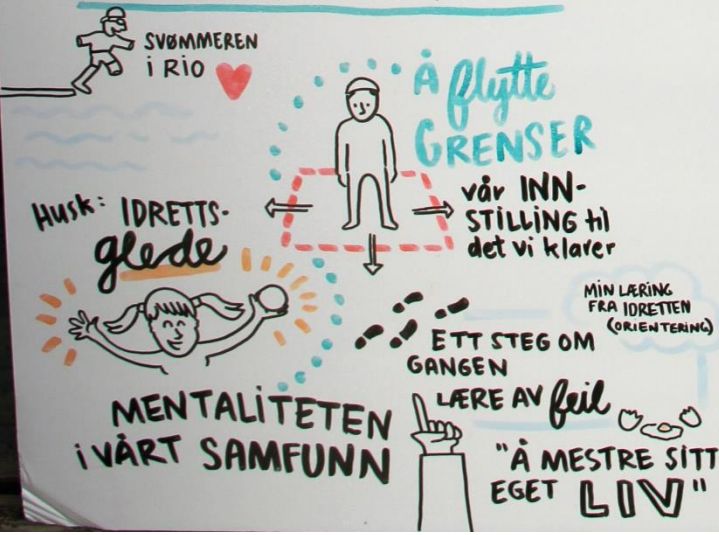 SVØMMEREN
i RiO
Å flytte
GRENSER
vår INN-
STILLING til
det vi klarer
Husk: IDRETTS-
glede
MIN LÆRING
FRA IDRETTEN
(ORIENTERING)
ETT STEG OM
GANGEN
LÆRE AV feil
MENTALITETEN
i VÅRT SAMFUNN
"Å MESTRE SITT
EGET LIV"